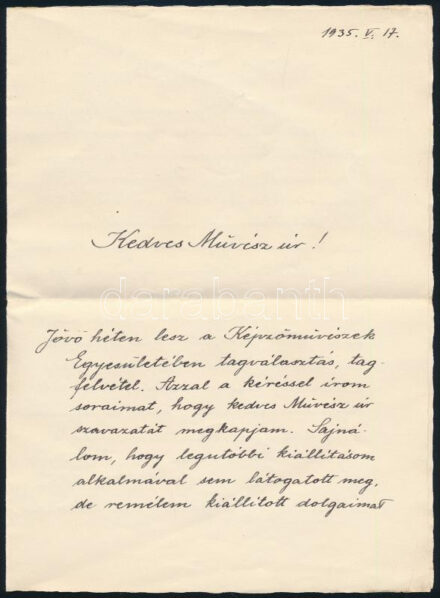 1935. V. 17.
Kedves Művész úr!
darabanth
Jövő héten lesz a Képzőművészek
Egyesületében tagválasztás, tag-
felvétel. Azzal a kéréssel irom
soraimat, hogy kedves Művész úr
szavazatát megkapjam. Sajná-
lom, hogy legutóbbi kiállitásom
alkalmával sem látogatott meg,
de remélem kiállitott dolgaimat